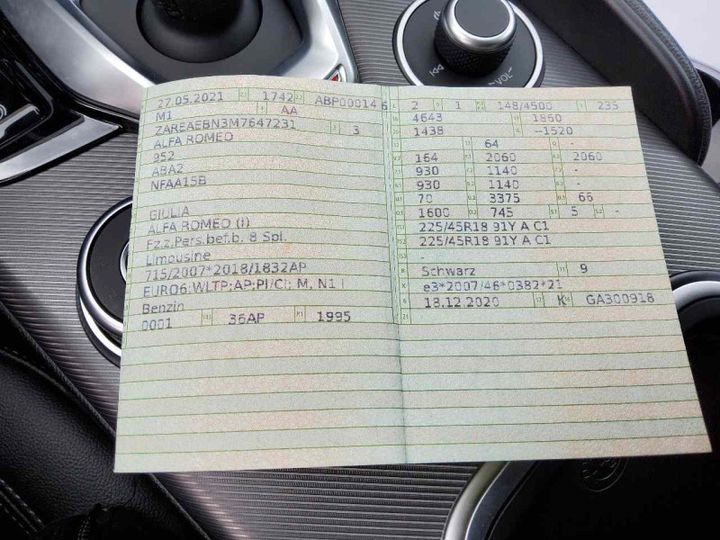 27.05.2021 1742 ABP00014 6
M1 AA
ZAREAEBN3M7647231 3
ALFA ROMEO
952
ABA2
NFAA15B
GIULIA
ALFA ROMEO (I)
Fz.z.Pers.bef.b. 8 Spl.
Limousine
715/2007*2018/1832AP
EURO6;WLTP;AP;PI/CI; M, N1 I
Benzin
0001 36AP 1995
2 1 148/4500 235
4643 1860
1438 –1520
64 -
164 2060 2060
930 1140 -
930 1140 -
70 3375 66
1600 745 5 -
225/45R18 91Y A C1
225/45R18 91Y A C1
-
Schwarz 9
e3*2007/46*0382*21
18.12.2020 K GA300918